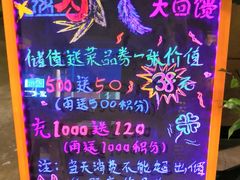 大回馈
储值送菜品券一张价值
500送50 38元
(再送500积分)
充1000送120
(再送1000积分)
注:每天消费不能超出价